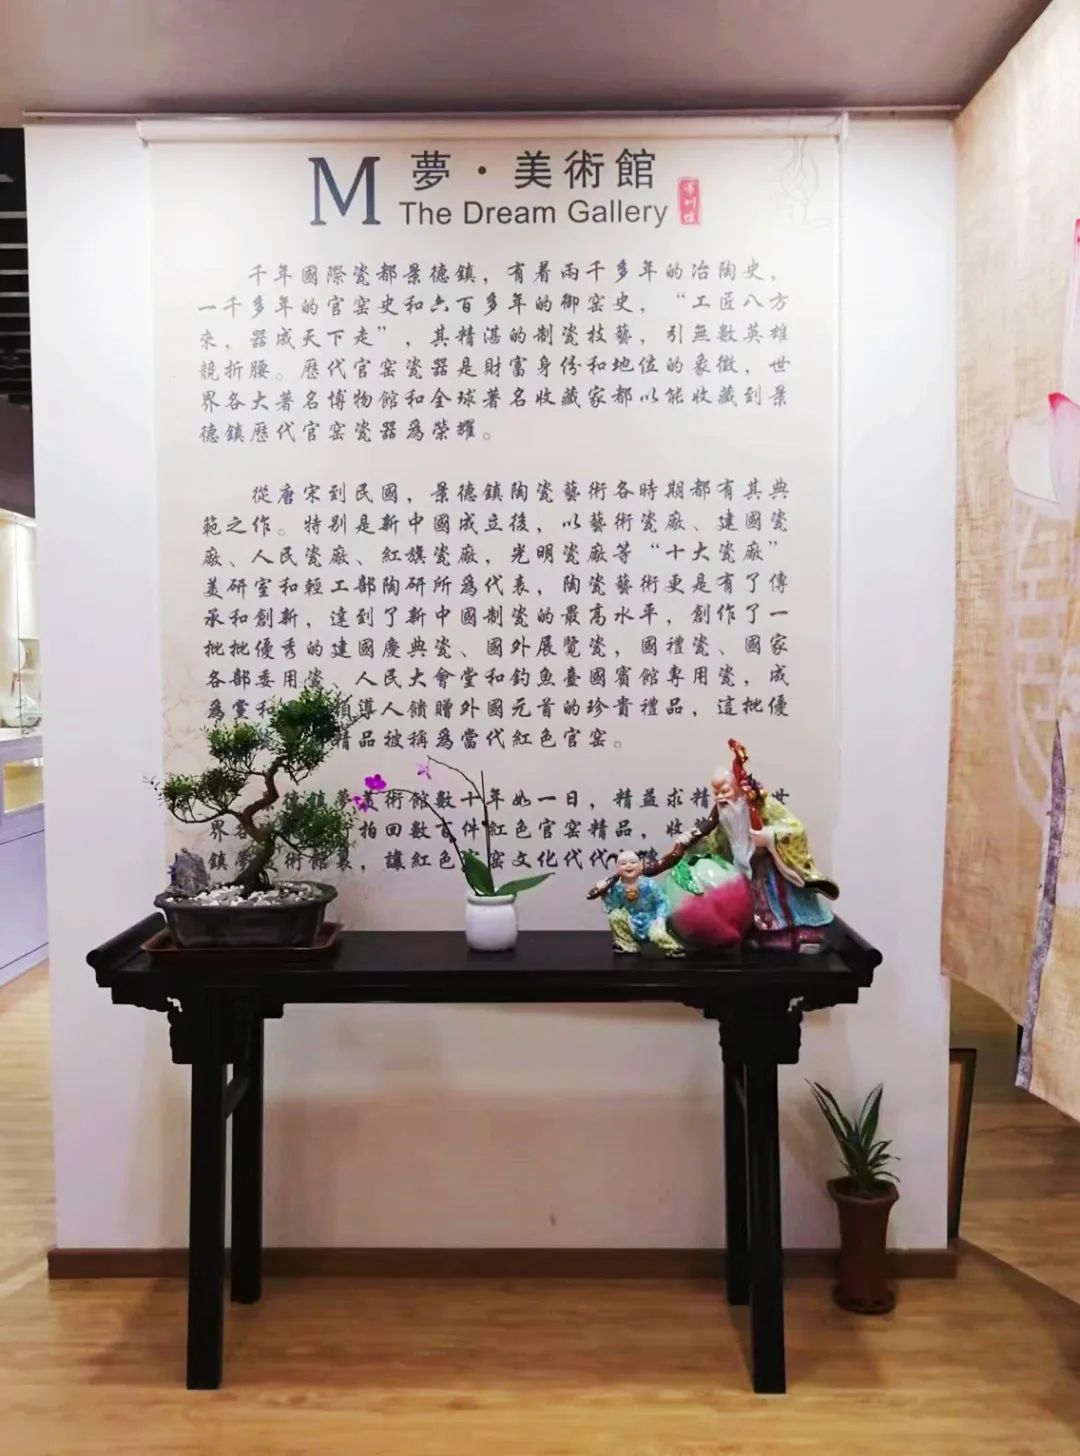 M 夢·美術館
The Dream Gallery
千年國際瓷都景德鎮，有着兩千多年的冶陶史，
一千多年的官窑史和六百多年的御窑史，“工匠八方
來，器成天下走”，其精湛的制瓷技藝，引無數英雄
競折腰。歷代官窑瓷器是財富身份和地位的象徵，世
界各大著名博物館和全球著名收藏家都以能收藏到景
德鎮歷代官窑瓷器爲榮耀。
從唐宋到民國，景德鎮陶瓷藝術各時期都有其典
範之作。特别是新中國成立後，以藝術瓷廠、建國瓷
廠、人民瓷廠、紅旗瓷廠，光明瓷廠等“十大瓷廠”
美研室和輕工部陶研所爲代表，陶瓷藝術更是有了傳
承和創新，達到了新中國制瓷的最高水平，創作了一
批批優秀的建國慶典瓷、國外展覽瓷，國禮瓷、國家
各部委用瓷、人民大會堂和釣魚臺國賓館專用瓷，成
爲黨和 領導人饋贈外國元首的珍貴禮品，這批優
精品被稱爲當代紅色官窑。
德鎮夢美術館數十年如一日，精益求精 世
界各 拍回數百件紅色官窑精品，收
鎮 術館裏，讓紅色官窑文化代代